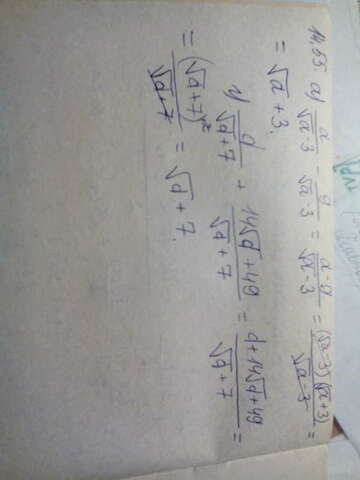 14.55. а) a/(√a-3) - 9/(√a-3) = (a-9)/(√a-3) = (√a-3)(√a+3)/(√a-3) =
= √a + 3.
d/(√d+7) + (14√d+49)/(√d+7) = (d+14√d+49)/(√d+7) =
= (√d+7)²/(√d+7) = √d + 7.